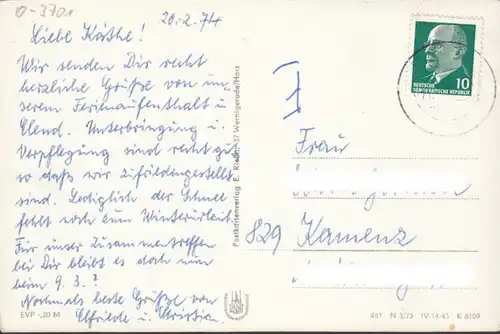 0-3701
20.2.74
Liebe Käthe!
Wir senden Dir recht
herzliche Grüße von un-
serem Ferienaufenthalt in
Elend. Unterbringung u.
Verpflegung sind recht gut
so daß wir zufriedengestellt
sind. Lediglich der Schnee
fehlt noch zum Winterurlaub.
Für unser Zusammentreffen
bei Dir bleibt es doch nun
beim 9.3.?
Nochmals beste Grüße von
Elfriede u. Christian
EVP -,20 M
Postkartenverlag E. Riehn, 37 Wernigerode/Harz
10
DEUTSCHE
DEMOKRATISCHE REPUBLIK
Frau
829 Kamenz
461 N 5/73 IV-14-45 K 6109